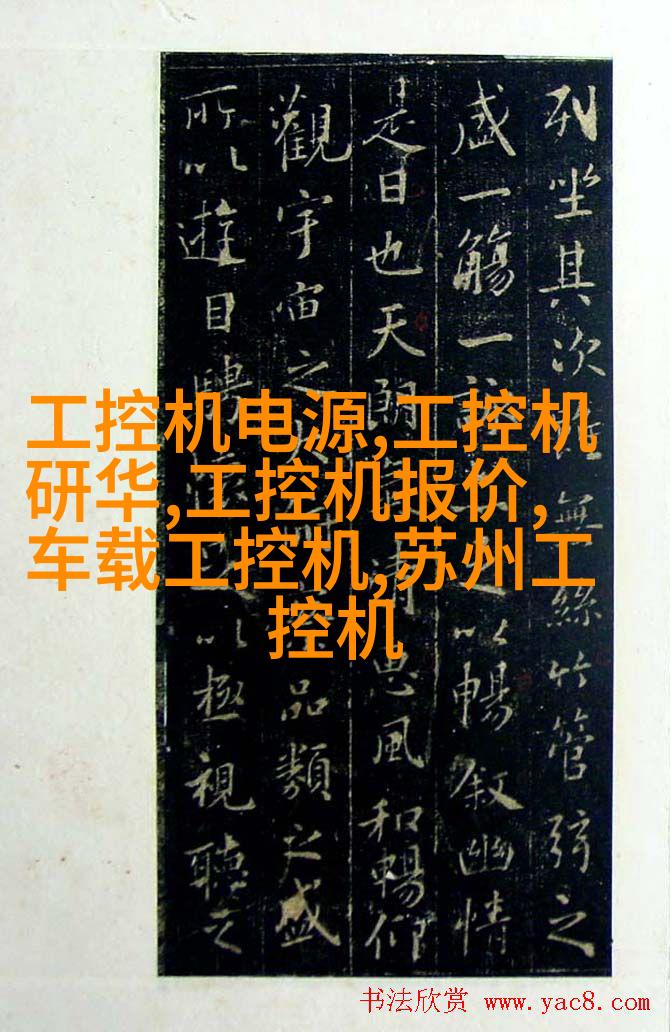 列坐其次無絲竹管弦之
盛一觴一以暢叙幽情
是日也天朗清惠風和暢仰
觀宇宙之品類之盛
所以遊目騁以極視聽之
工控机电源,工控机
研华,工控机报价,
车载工控机,苏州工
控机
书法欣赏 www.yac8.com